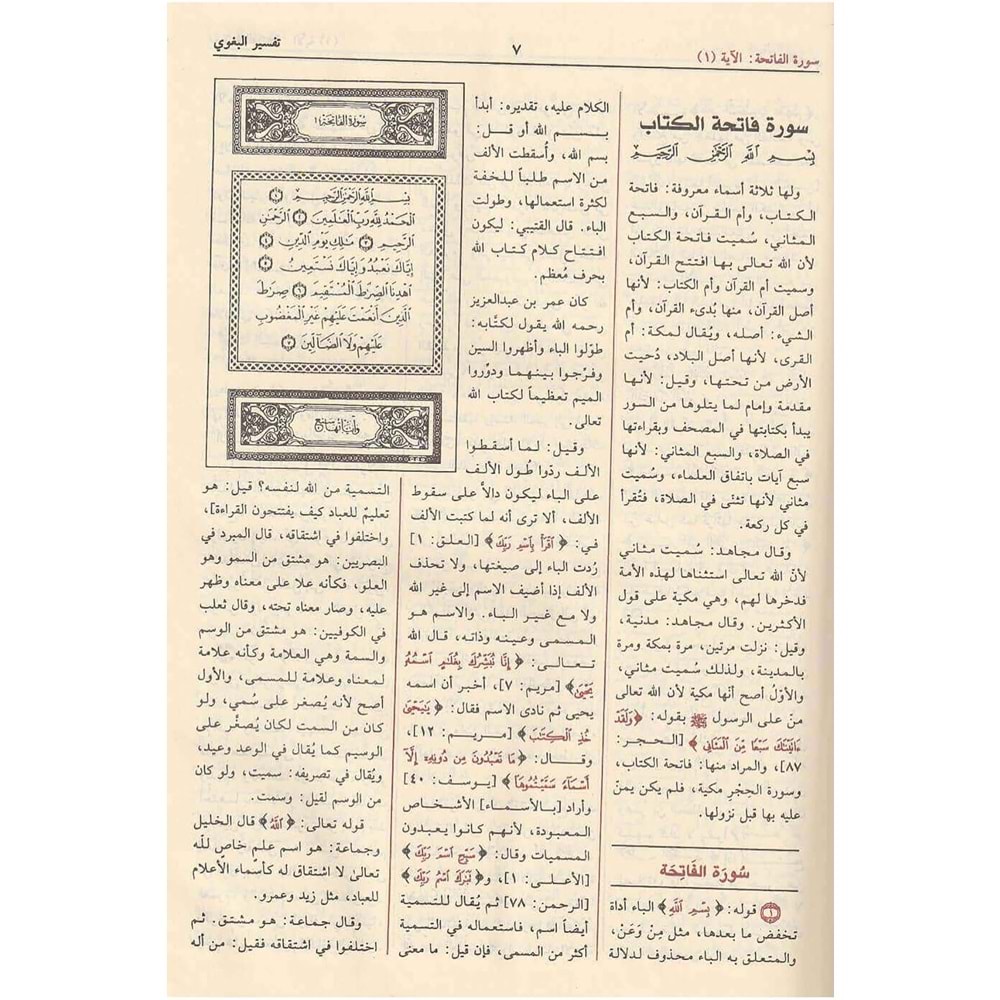 سورة الفاتحة: الآية (١)
٧
تفسير البغوي
سورة فاتحة الكتاب
بِسْمِ اللَّهِ الرَّحْمَٰنِ الرَّحِيمِ
ولها ثلاثة أسماء معروفة: فاتحة
الكتاب، وأم القرآن، والسبع
المثاني، سُميت فاتحة الكتاب
لأن الله تعالى بها افتتح القرآن،
وسميت أم القرآن وأم الكتاب: لأنها
أصل القرآن، منها بُدىء القرآن، وأم
الشيء: أصله، ويُقال لمكة: أم
القرى، لأنها أصل البلاد، دُحيت
الأرض من تحتها، وقيل: لأنها
مقدمة وإمام لما يتلوها من السور
يبدأ بكتابتها في المصحف وبقراءتها
في الصلاة، والسبع المثاني: لأنها
سبع آيات باتفاق العلماء، وسُميت
مثاني لأنها تثنّى في الصلاة، فتُقرأ
في كل ركعة.
وقال مجاهد: سُميت مثاني
لأنّ الله تعالى استثناها لهذه الأمة
فدخرها لهم، وهي مكية على قول
الأكثرين. وقال مجاهد: مدنية،
وقيل: نزلت مرتين، مرة بمكة ومرة
بالمدينة، ولذلك سُميت مثاني،
والأوّل أصح أنّها مكية لأن الله تعالى
منّ على الرسول ﷺ بقوله: ﴿وَلَقَدْ
ءَاتَيْنَٰكَ سَبْعًا مِّنَ الْمَثَانِي﴾ [الحجر:
٨٧]، والمراد منها: فاتحة الكتاب،
وسورة الحِجْرِ مكية، فلم يكن يمنّ
عليه بها قبل نزولها.
سُورَة الفَاتِحَة
١ قوله: ﴿بِسْمِ اللَّهِ﴾ الباء أداة
تخفض ما بعدها، مثل مِنْ وَعَنْ،
والمتعلق به الباء محذوف لدلالة
الكلام عليه، تقديره: أبدأ
بسم الله أو قل:
بسم الله، وأُسقطت الألف
من الاسم طلباً للخفة
لكثرة استعمالها، وطولت
الباء. قال القتيبي: ليكون
افتتاح كلام كتاب الله
بحرف مُعظم.
كان عمر بن عبدالعزيز
رحمه الله يقول لكتَّابه:
طوّلوا الباء وأظهروا السين
وفرّجوا بينهما ودوِّروا
الميم تعظيماً لكتاب الله
تعالى.
وقيل: لما أسقطوا
الألف ردّوا طُول الألف
على الباء ليكون دالاً على سقوط
الألف، ألا ترى أنه لما كتبت الألف
في: ﴿اقْرَأْ بِاسْمِ رَبِّكَ﴾ [العلق: ١]
رُدت الباء إلى صيغتها، ولا تحذف
الألف إذا أضيف الاسم إلى غير الله
ولا مع غير الباء. والاسم هو
المسمى وعينه وذاته، قال الله
تعالى: ﴿إِنَّا نُبَشِّرُكَ بِغُلَٰمٍ اسْمُهُ
يَحْيَىٰ﴾ [مريم: ٧]، أخبر أن اسمه
يحيى ثم نادى الاسم فقال: ﴿يَٰيَحْيَىٰ
خُذِ الْكِتَٰبَ﴾ [مريم: ١٢]،
وقال: ﴿مَا تَعْبُدُونَ مِن دُونِهِ إِلَّا
أَسْمَاءً سَمَّيْتُمُوهَا﴾ [يوسف: ٤٠]
وأراد [بالأسماء] الأشخاص
المعبودة، لأنهم كانوا يعبدون
المسميات وقال: ﴿سَبِّحِ اسْمَ رَبِّكَ﴾
[الأعلى: ١]، و﴿تَبَٰرَكَ اسْمُ رَبِّكَ﴾
[الرحمن: ٧٨] ثم يُقال للتسمية
أيضاً اسم، فاستعماله في التسمية
أكثر من المسمى، فإن قيل: ما معنى
سُورَةُ الفَاتِحَة ١
بِسْمِ اللَّهِ الرَّحْمَٰنِ الرَّحِيمِ ١
الْحَمْدُ لِلَّهِ رَبِّ الْعَٰلَمِينَ ٢ الرَّحْمَٰنِ
الرَّحِيمِ ٣ مَٰلِكِ يَوْمِ الدِّينِ ٤
إِيَّاكَ نَعْبُدُ وَإِيَّاكَ نَسْتَعِينُ ٥
اهْدِنَا الصِّرَٰطَ الْمُسْتَقِيمَ ٦ صِرَٰطَ
الَّذِينَ أَنْعَمْتَ عَلَيْهِمْ غَيْرِ الْمَغْضُوبِ
عَلَيْهِمْ وَلَا الضَّالِّينَ ٧
التسمية من الله لنفسه؟ قيل: هو
تعليمٌ للعباد كيف يفتتحون القراءة]،
واختلفوا في اشتقاقه، قال المبرد في
البصريين: هو مشتق من السمو وهو
العلو، فكأنه علا على معناه وظهر
عليه، وصار معناه تحته، وقال ثعلب
في الكوفيين: هو مشتق من الوسم
والسمة وهي العلامة وكأنه علامة
لمعناه وعلامة للمسمى، والأول
أصح لأنه يُصغر على سُمي، ولو
كان من السمت لكان يُصغْر على
الوسيم كما يُقال في الوعد وعيد،
ويُقال في تصريفه: سميت، ولو كان
من الوسم لقيل: وسمت.
قوله تعالى: ﴿اللَّهِ﴾ قال الخليل
وجماعة: هو اسم علمٍ خاصٍ للّه
تعالىٰ لا اشتقاق له كأسماء الأعلام
للعباد، مثل زيد وعمرو.
وقال جماعة: هو مشتق. ثم
اختلفوا في اشتقاقه فقيل: من أله